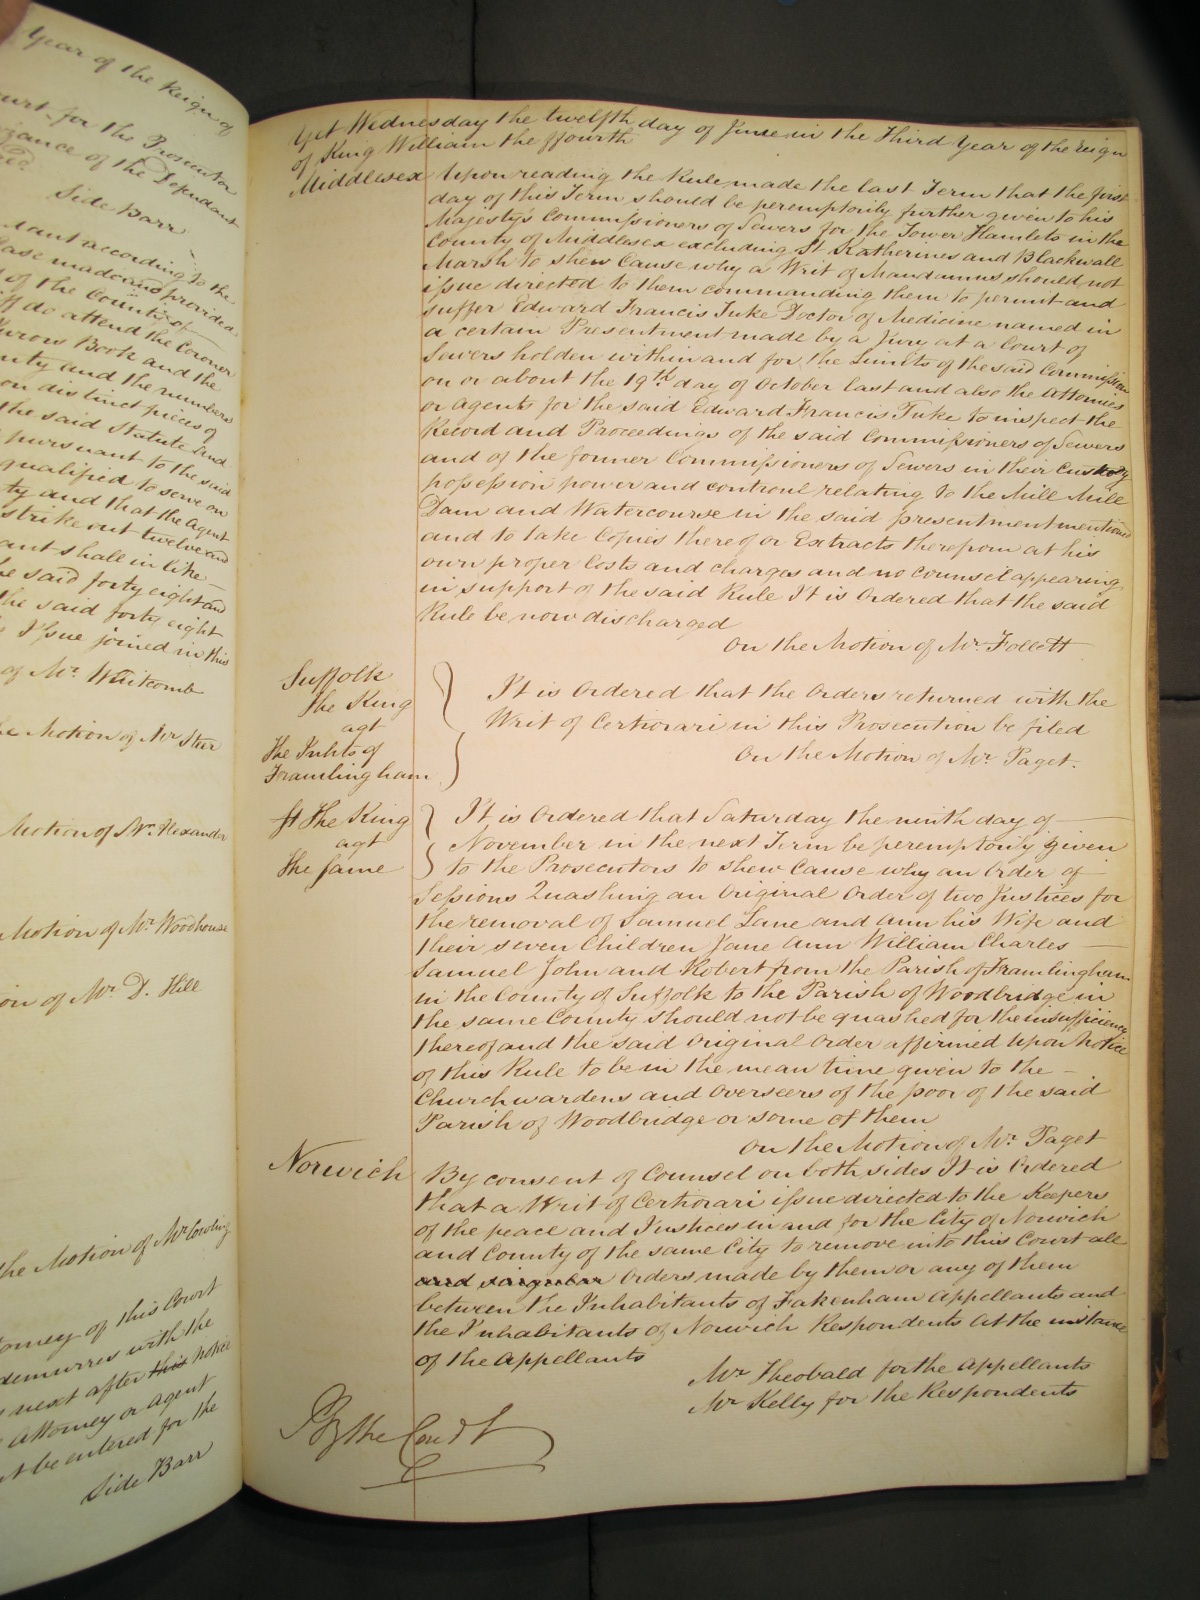 Year of the Reign of
Court for the Prosecutor
of the Defendant
Side Barr
according to the
Case made and provided
of the County of
do attend the Coroner
Book and the
and the numbers
on distinct pieces of
the said Statute and
pursuant to the said
qualified to serve on
and that the Agent
strike out twelve and
shall in like
the said forty eight and
the said forty eight
Issue joined in this
of Mr. Whitcomb
Motion of Mr Steer
Motion of Mr. Alexander
Motion of Mr. Woodhouse
of Mr. D. Hill
the Motion of Mr Cowling
of this Court
with the
next after this notice
Attorney or Agent
be entered for the
Side Barr
Yet Wednesday the twelfth day of June in the Third Year of the reign
of King William the ffourth
Middlesex Upon reading the Rule made the last Term that the first
day of this Term should be peremptorily further given to his
Majesty's Commissioners of Sewers for the Tower Hamlets in the
County of Middlesex excluding St. Katherines and Blackwall
Marsh to shew Cause why a Writ of Mandamus should not
issue directed to them commanding them to permit and
suffer Edward Francis Tuke Doctor of Medicine named in
a certain Presentment made by a Jury at a Court of
Sewers holden within and for the Limits of the said Commission
on or about the 19th day of October last and also the Attornies
or agents for the said Edward Francis Tuke to inspect the
Record and Proceedings of the said Commissioners of Sewers
and of the former Commissioners of Sewers in their Custody
possession power and controul relating to the Mill Mill
Dam and Watercourse in the said presentment mentioned
and to take Copies thereof or Extracts therefrom at his
own proper Costs and charges and no Counsel appearing
in support of the said Rule It is Ordered that the said
Rule be now discharged
On the Motion of Mr. Follett
Suffolk
The King
agt
The Inhts of
Framlingham
It is Ordered that the Orders returned with the
Writ of Certiorari in this Prosecution be filed
On the Motion of Mr. Paget.
St The King
agt
The same
It is Ordered that Saturday the ninth day of
November in the next Term be peremptorily given
to the Prosecutors to shew Cause why an Order of
Sessions Quashing an Original Order of two Justices for
the removal of Samuel Lane and Ann his Wife and
their seven Children Jane Ann William Charles
Samuel John and Robert from the Parish of Framlingham
in the County of Suffolk to the Parish of Woodbridge in
the same County should not be quashed for the insufficiency
thereof and the said Original Order affirmed Upon Notice
of this Rule to be in the mean time given to the
Churchwardens and Overseers of the poor of the said
Parish of Woodbridge or some of them
On the Motion of Mr. Paget
Norwich By consent of Counsel on both sides It is Ordered
that a Writ of Certiorari issue directed to the Keepers
of the peace and Justices in and for the City of Norwich
and County of the same City to remove into this Court all
and singular Orders made by them or any of them
between the Inhabitants of Fakenham Appellants and
the Inhabitants of Norwich Respondents At the instance
of the Appellants
Mr. Theobald for the Appellants
Mr. Kelly for the Respondents
By the Court